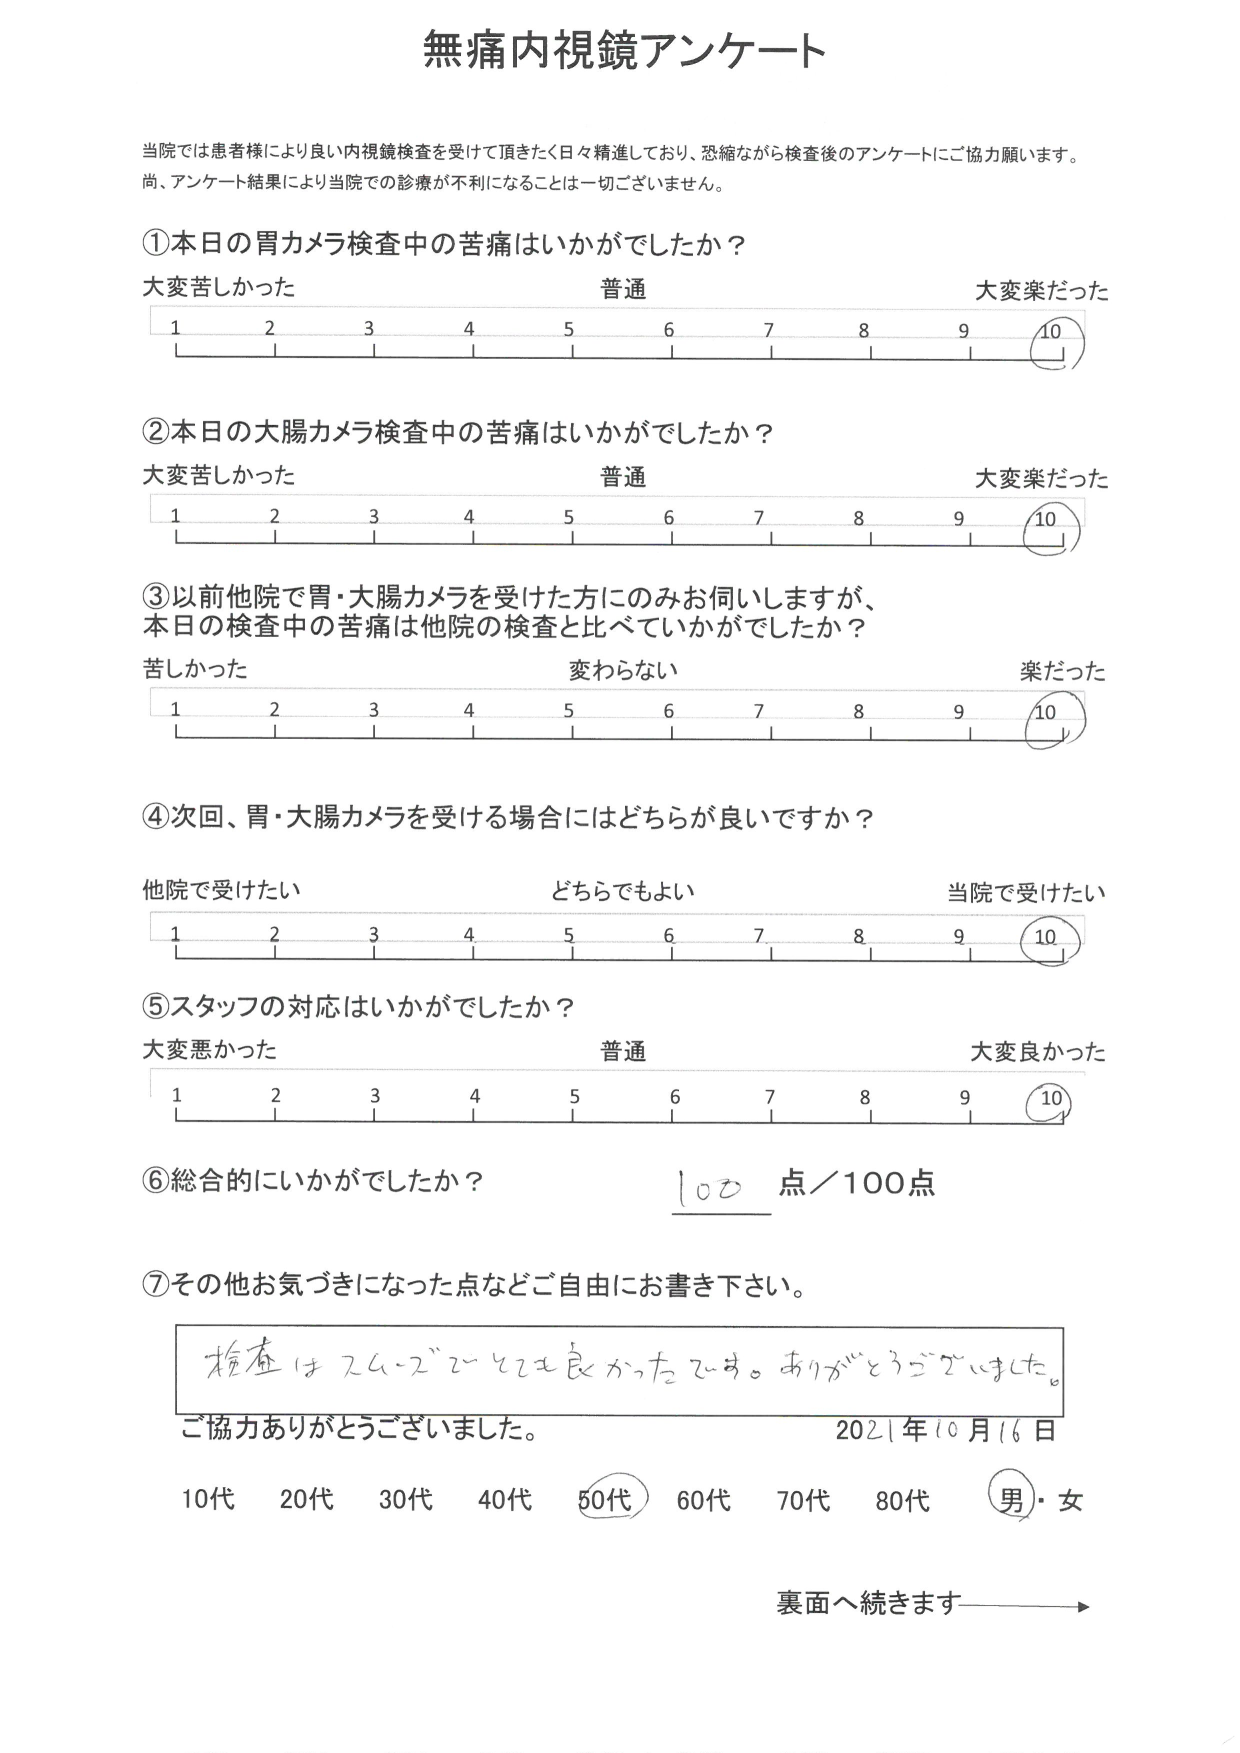 無痛内視鏡アンケート
当院では患者様により良い内視鏡検査を受けて頂きたく日々精進しており、恐縮ながら検査後のアンケートにご協力願います。
尚、アンケート結果により当院での診療が不利になることは一切ございません。
①本日の胃カメラ検査中の苦痛はいかがでしたか？
大変苦しかった 普通 大変楽だった
1 2 3 4 5 6 7 8 9 10
②本日の大腸カメラ検査中の苦痛はいかがでしたか？
大変苦しかった 普通 大変楽だった
1 2 3 4 5 6 7 8 9 10
③以前他院で胃・大腸カメラを受けた方にのみお伺いしますが、
本日の検査中の苦痛は他院の検査と比べていかがでしたか？
苦しかった 変わらない 楽だった
1 2 3 4 5 6 7 8 9 10
④次回、胃・大腸カメラを受ける場合にはどちらが良いですか？
他院で受けたい どちらでもよい 当院で受けたい
1 2 3 4 5 6 7 8 9 10
⑤スタッフの対応はいかがでしたか？
大変悪かった 普通 大変良かった
1 2 3 4 5 6 7 8 9 10
⑥総合的にいかがでしたか？ 100 点／100点
⑦その他お気づきになった点などご自由にお書き下さい。
検査はスムーズでとても良かったです。ありがとうございました。
ご協力ありがとうございました。 2021年10月16日
10代 20代 30代 40代 50代 60代 70代 80代 男・女
裏面へ続きます